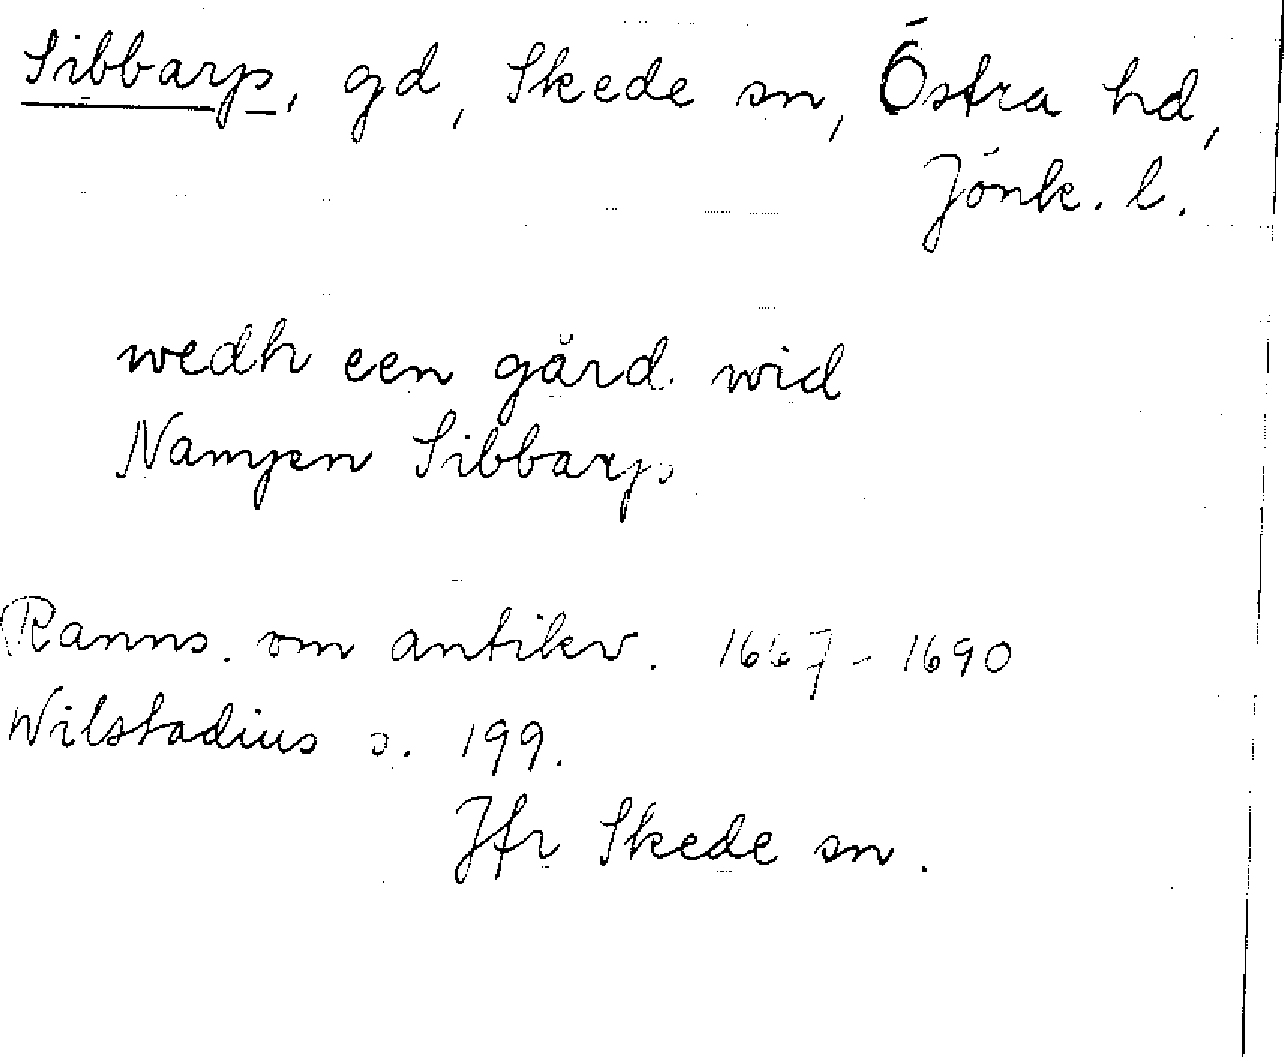 Sibbarp, gd, Skede sn, Östra hd,
Jönk. l.
wedh een gård wid
Nampen Sibbarp
Ranns. om antikv. 1667-1690
Wilstadius s. 199.
Jfr Skede sn.